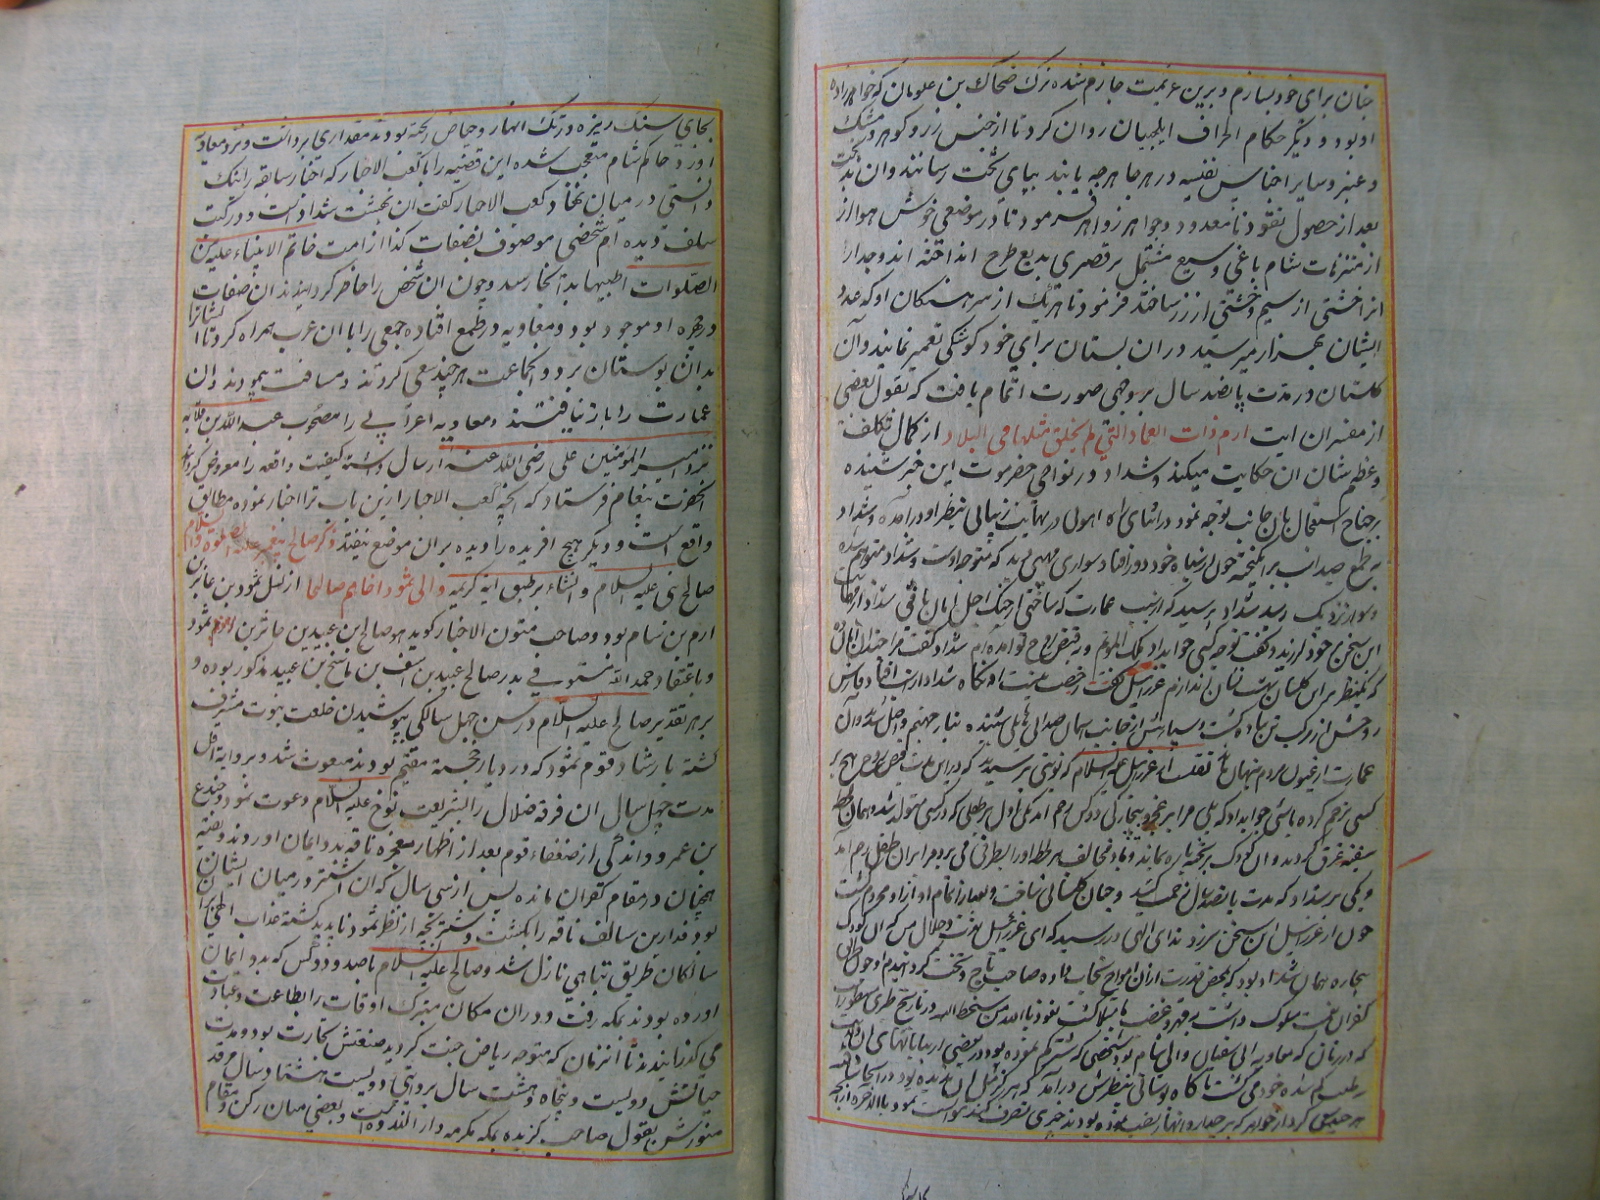 جنان برای خود بسازم و برین عزیمت جازم شده نزد ضحاک بن علوان که خواهرزاده
او بود و دیگر حکام اطراف ایلچیان روان کرد تا از جنس زر و گوهر و مشک
و عنبر و سایر اجناس نفیسه در هر جا هر چه یابند بپای تخت رسانند و ان
بعد از حصول نقود نامعدود و جواهر زواهر فرمود تا در موضعی خوش هوا از
از منتزهات شام باغی وسیع مشتمل بر قصری بدیع طرح انداختند و جدار
انرا خشتی از سیم و خشتی از زر ساختند فرمود تا هر یک از سرهنگان او که عدد
ایشان بهزار میرسید در ان بستان برای خود کوشکی تعمیر نمایند و آن
کلستان در مدت پانصد سال بر وجهی صورت اتمام یافت که بقول بعضی
از مفسران ایت ارم ذات العماد التی لم یخلق مثلها فی البلاد از کمال تکلف
و عظم شان ان حکایت میکند و شداد در نواحی حضرموت این خبر شنیده
بر جناح استعجال بان جانب توجه نمود در اثنای راه اهوئی در نهایت زیبائی بنظر او درآمده و شداد
بطمع صید اسب برانگیخته چون از سپاه خود دور افتاد سواری مهیب دید که متوجه اوست و شداد متوهم شده
و سوار نزدیک رسید شداد پرسید که
این سخن بر خود لرزید و گفت تو چه کسی جواب داد که ملک الموتم و بقبض روح تو آمده ام شداد گفت مرا چندان امان
که یکنظر بر این کلستان بهشت نشان اندازم عزرائیل گفت رخصت نیست
روحش از مرکب تن پیاده گشت و سپاهش از جانب آسمان صدای هایل شنیده بنار جهنم واصل شدند و آن
عمارت از عیون مردم پنهان ماند نقلست از عزرائیل علیه السلام که نوبتی پرسیدند که در این مدت قبض روح هیچ بر
کسی ترحم کرده باشی جواب داد که بلی مرا بر عجز و بیچارگی دو کس رحم آمد یکی اول بر طفلی که در کشتی متولد شد و همان لحظه
سفینه غرق گردید و ان کودک بر تخته پاره بماند و باد مخالف هر لحظه او را بطرفی می برد مرا بر ان طفل رحم آمد
و یکی بر شداد که مدت پانصد سال زحمت کشید و چنان کلستانی ساخت و بعد از اتمام او از او محروم گشت
چون از عزرائیل این سخن سر زد ندای الهی در رسید که ای عزرائیل بعزت و جلال من که ان کودک
بیچاره همان شداد بود که بمحض قدرت از ان امواج نجات داده صاحب تاج و تخت گردانیدم و چون
کفران نعمت سلوک داشت بقهر و غضب ما مبتلا گشت نعوذ بالله من سخط الله در تاریخ طبری مسطور است
که در زمان که معاویه ابی سفیان والی شام بود شخصی که شتر کم نموده بود در بعضی از بیابانهای
بطلب کم شده خود می گشت ناگاه بوستانی بنظرش درآمد که هرگز مثل ان ندیده بود
بجای سنگ ریزه در تک انهار و حیاض ریخته بودند مقداری برداشت و نزد معاویه
آورد حاکم شام متعجب شده این قضیه را با کعب الاحبار که اخبار سابقه را نیک
دانستی در میان نهاد و کعب الاحبار گفت ان بهشت شداد است و در کتب
سلف دیده ام شخصی موصوف بصفات کذا از امت خاتم الانبیاء علیه من
الصلوات اطیبها بدانجا رسد و چون ان شخص را حاضر گردانیدند ان صفات
در چهره او موجود بود و معاویه در طمع افتاده جمعی را با ان عرب همراه کرد تا
بدان بوستان برد و انجماعت هر چند سعی کردند و مسافت پیمودند ان
عمارت را باز نیافتند و معاویه اعرابی را مصحوب عبدالله بن قلابه
نزد امیر المؤمنین علی رضی الله عنه ارسال داشته کیفیت واقعه را معروض گردانید
انحضرت پیغام فرستاد که انچه کعب الاحبار ازین باب ترا اخبار نموده مطابق
واقع است و دیگر هیچ افریده را دیده بران موضع نیفتد ذکر صالح پیغمبر علیه الصلوة و السلام
صالح نبی علیه السلام و الثناء بر طبق ایه کریمه والی ثمود اخاهم صالحا از نسل ثمود بن عابر بن
ارم بن سام بود و صاحب متون الاخبار گوید هو صالح بن عبید بن جاثر بن ارم ثمود
و باعتقاد حمد الله مستوفی پدر صالح عبید بن سف بن ماسخ بن عبید مذکور بوده و
بر هر تقدیر صالح علیه السلام در سن چهل سالگی بپوشیدن خلعت نبوت مشرف
گشته بارشاد قوم ثمود که در دیار حجر مقیم بودند مبعوث شد و بروایه اقل
مدت چهل سال ان فرقه ضلال را بشریعت نوح علیه السلام دعوت نمود و جندع
بن عمرو و اندکی از ضعفاء قوم بعد از اظهار معجزه ناقه بدو ایمان اوردند و بقیه
همچنان در مقام کفران مانده پس از سی سال که ان اشتر در میان ایشان
بود قدار بن سالف ناقه را بکشت و شتر بچه از نظر ثمود ناپدید گشته عذاب الهی بر
سالکان طریق تباهی نازل شد و صالح علیه السلام با صد و دو کس که بدو ایمان
اورده بودند بمکه رفت و در ان مکان متبرک اوقات را بطاعت و عبادت
می گذرانیدند تا انزمان که متوجه ریاض جنت گردید صنعتش تجارت بود و مدت
حیاتش دویست و پنجاه و هشت سال بروایتی دویست هشتاد سال مرقد
منورش بقول صاحب گزیده بمکه مکرمه در دار الندوه است و بعضی میان رکن و مقام